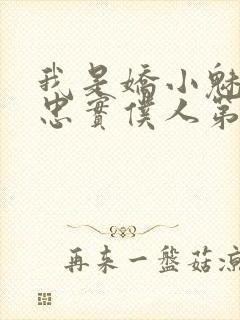 我是嬌小魅
忠實僕人第
再来一盤菇凉